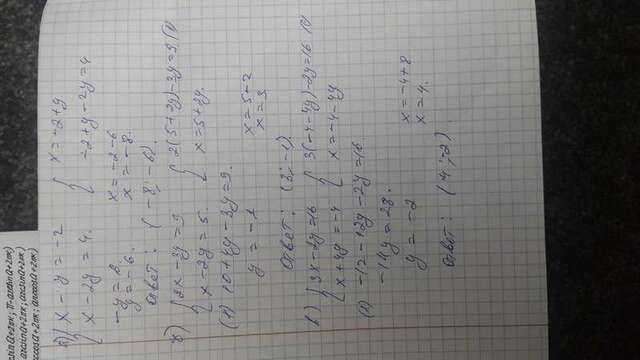 arcsin a+2πk; π-arcsin a+2πk)
arcsin a+2πk; arcsin a+2πk)
arccos a+2πk; arccos a+2πk)
а) { x - y = -2 { x = -2+y
x - 2y = 4. -2+y-2y=4
-y = 6. x = -2-6
y = -6. x = -8.
Ответ: (-8; -6).
б) { 2x - 3y = 9 { 2(5+2y)-3y=9 (1)
x - 2y = 5. x = 5+2y.
(1) 10+4y-3y=9.
y = -1 x = 5-2
x = 3
Ответ: (3; -1).
в) { 3x-2y=16 { 3(-4-4y)-2y=16 (1)
x+4y=-4 x=-4-4y
(1) -12-12y-2y=16
-14y=28.
y = -2 x = -4+8
x = 4.
Ответ: (4; -2).